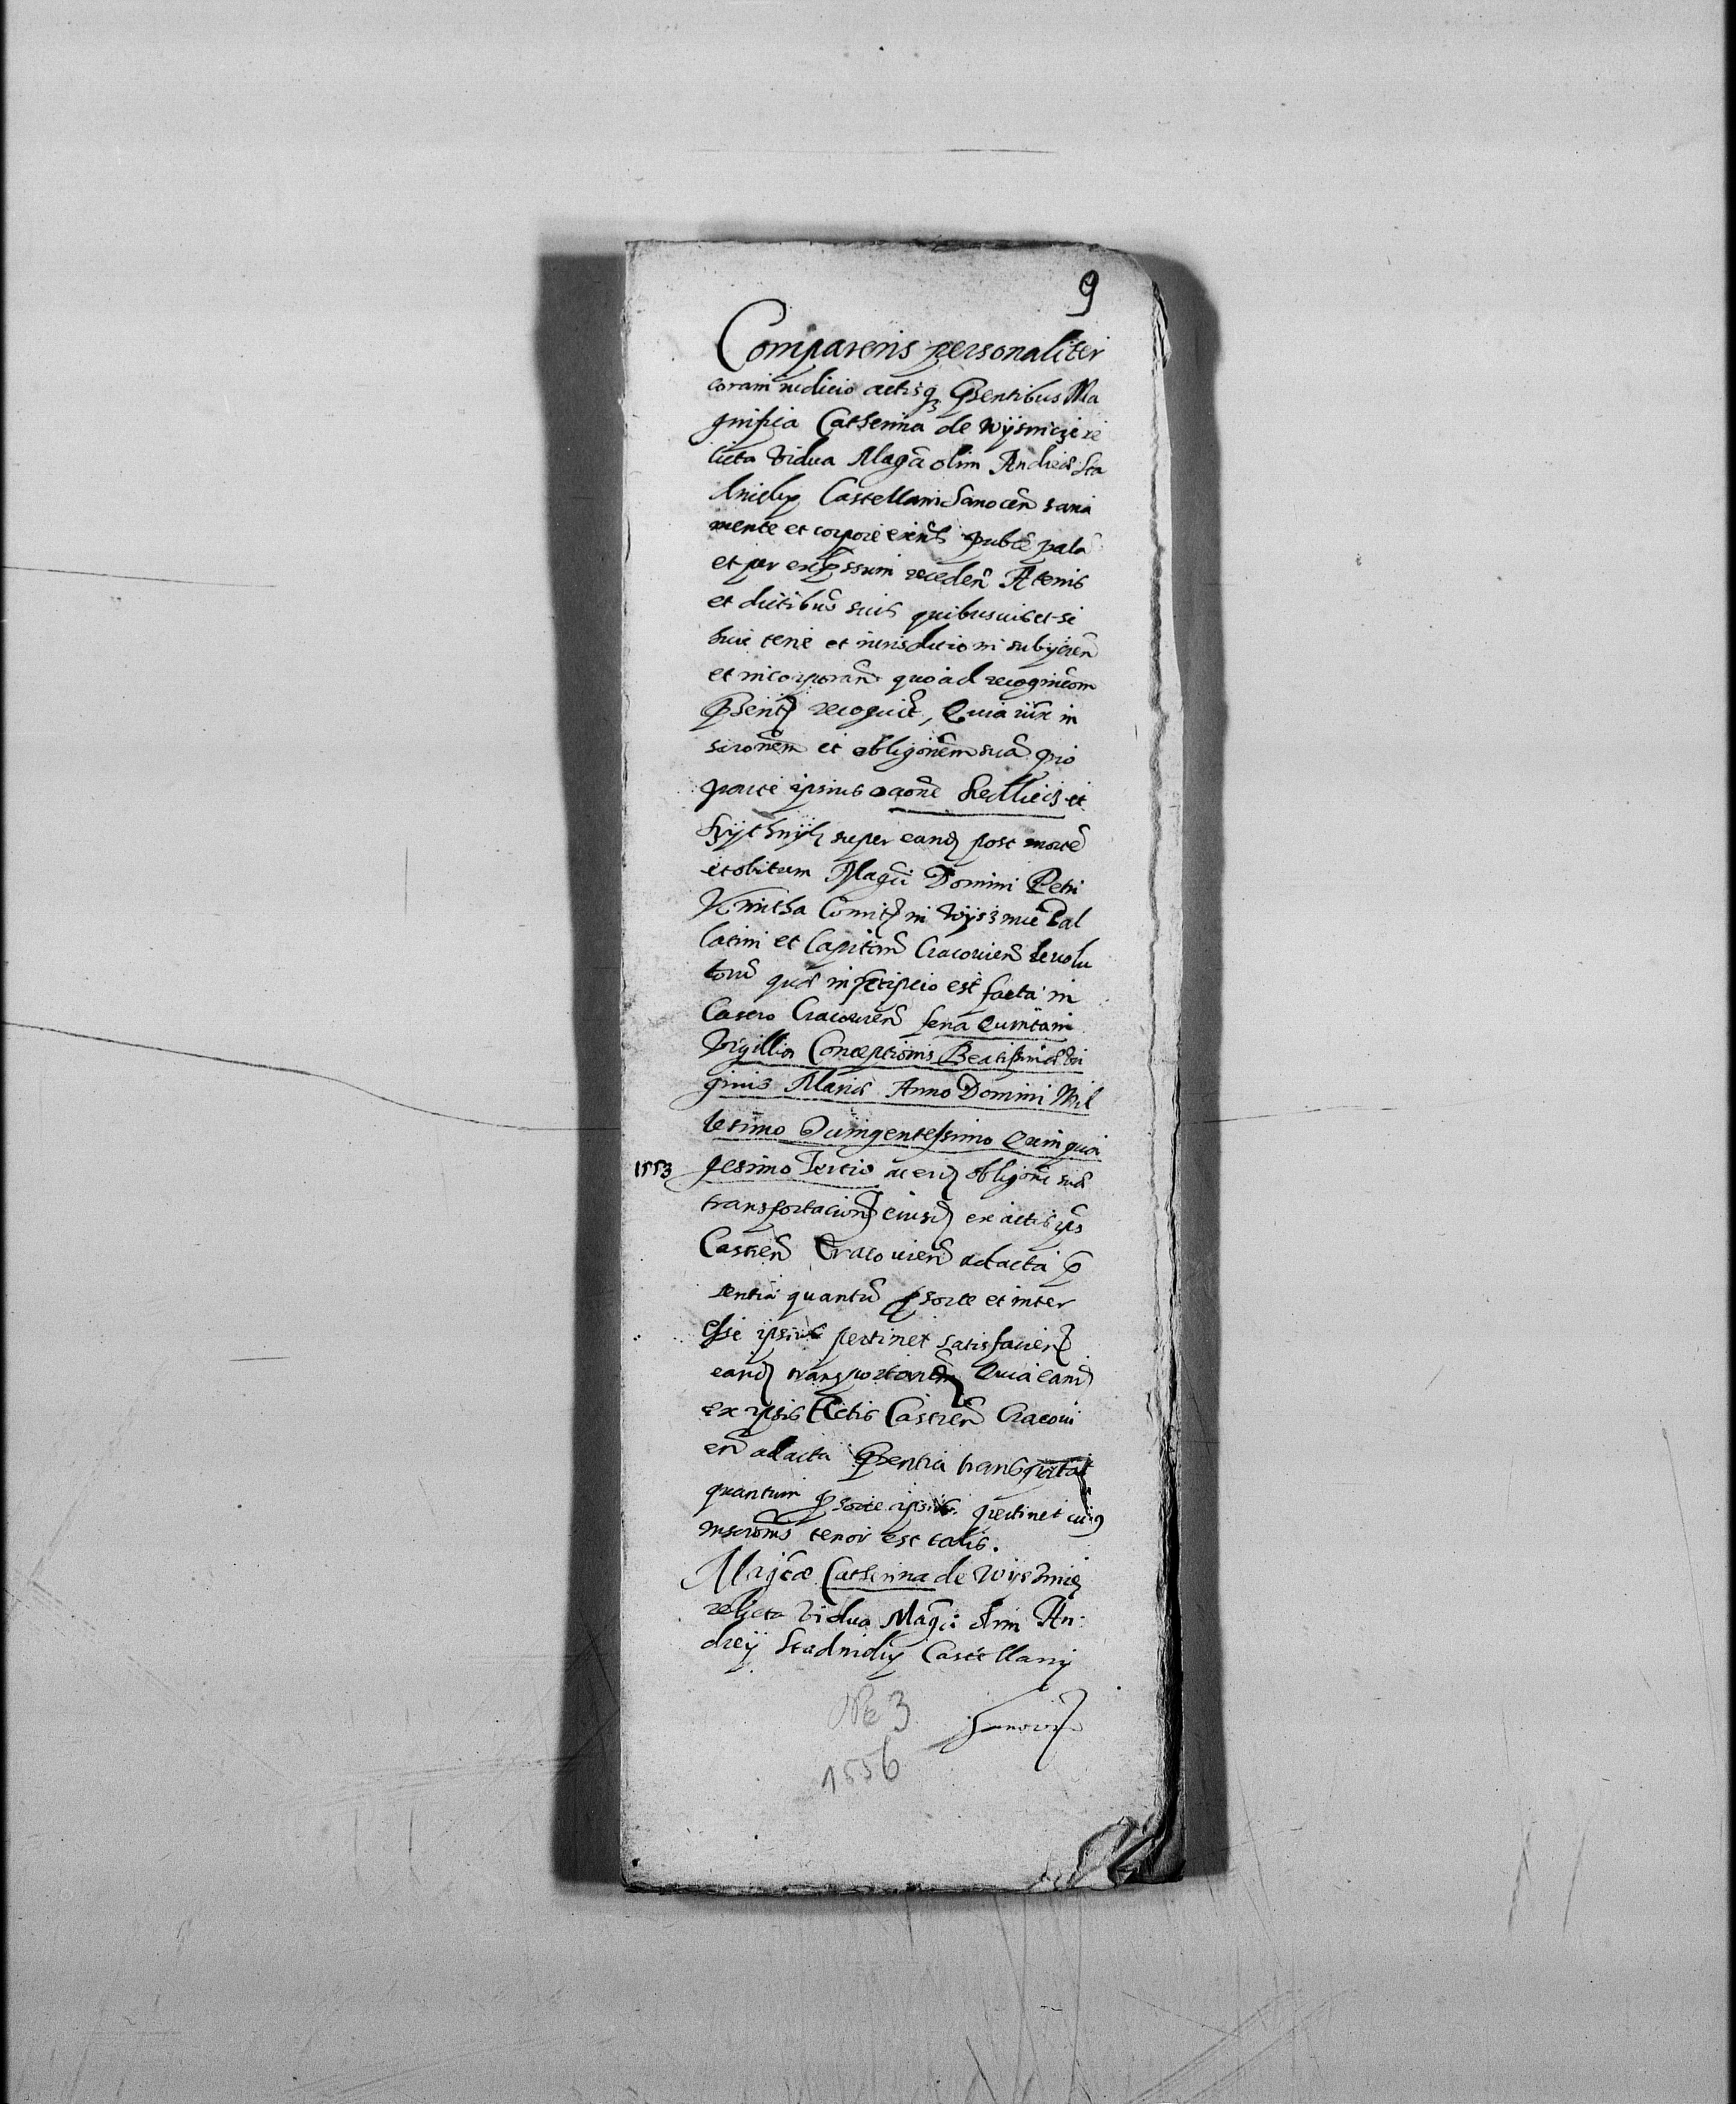 9
Comparens personaliter
coram iudicio actisq₃ p̃sentibus Ma
gnifica Catherina de Wysnicze re
licta vidua Mag̃ci olim Andreæ Sta
dnicky Castellani Sanocen̄ sana
mente et corpore exen̄s publ̃e palā
et per exp̃ssum receden̄ A terris
et dictibus suis quibusuis et se
huic terre et iurisdictioni subyicien̄
et incorporan̄ quo ad recognic̃om
p̃sent̃ recognit, Quia iux̃ in
scron̄em et obligon̄em suā pro
parte ipsius bonor̃ Sedliecz et
super eand̃ post mortē
et obitum Mag̃ci Domini Petri
Kmitha Comit̃ in Wysznic̃ Pal
latini et Capitan̄ Cracouien̄ deuolu
torū quæ in p̃cipicio est facta in
Castro Cracouien̄ feria Quinta in
Vigillia Conceptionis Beatissimæ Vir
ginis Mariæ Anno Domini Mil
lesimo Quingentessimo Quinqua
1553 gesimo Tertio ac eid̃ obligon̄i suæ
transportacion̄ eiusd̃ ex actis ip̃s
Castren̄ Cracouien̄ ad acta p̃
sentia quantū p̃ sorte et inter
esse ipsius pertinet satisfacien̄
eand̃ transportauit Quia eand̃
ex ipsis Actis Castren̄ Cracoui
en̄ ad acta p̃sentia transportat
quantum p̃ sorte ipsius pertinet cuiꝰ
inscron̄is tenor est talis.
Mag̃ca Catherina de Wysznicz
relicta vidua Mag̃ci olim An
dreij Stadnicky Castellani
Sanocien̄
№ 3
1556